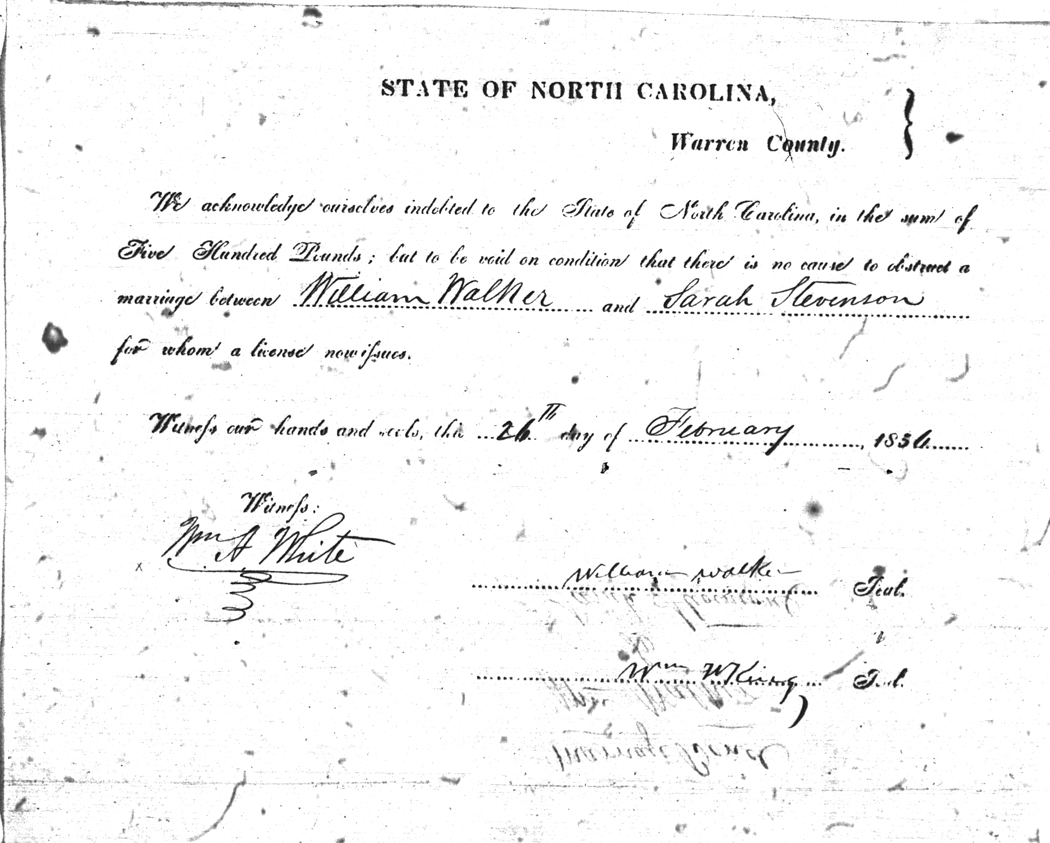 STATE OF NORTH CAROLINA,
Warren County.
We acknowledge ourselves indebted to the State of North Carolina, in the sum of
Five Hundred Pounds; but to be void on condition that there is no cause to obstruct a
marriage between William Walker and Sarah Stevenson
for whom a license now issues.
Witness our hands and seals, the 26th day of February, 1836
Witness:
Wm A White
William Walker Seal.
Wm W King Seal.
Marriage Bond